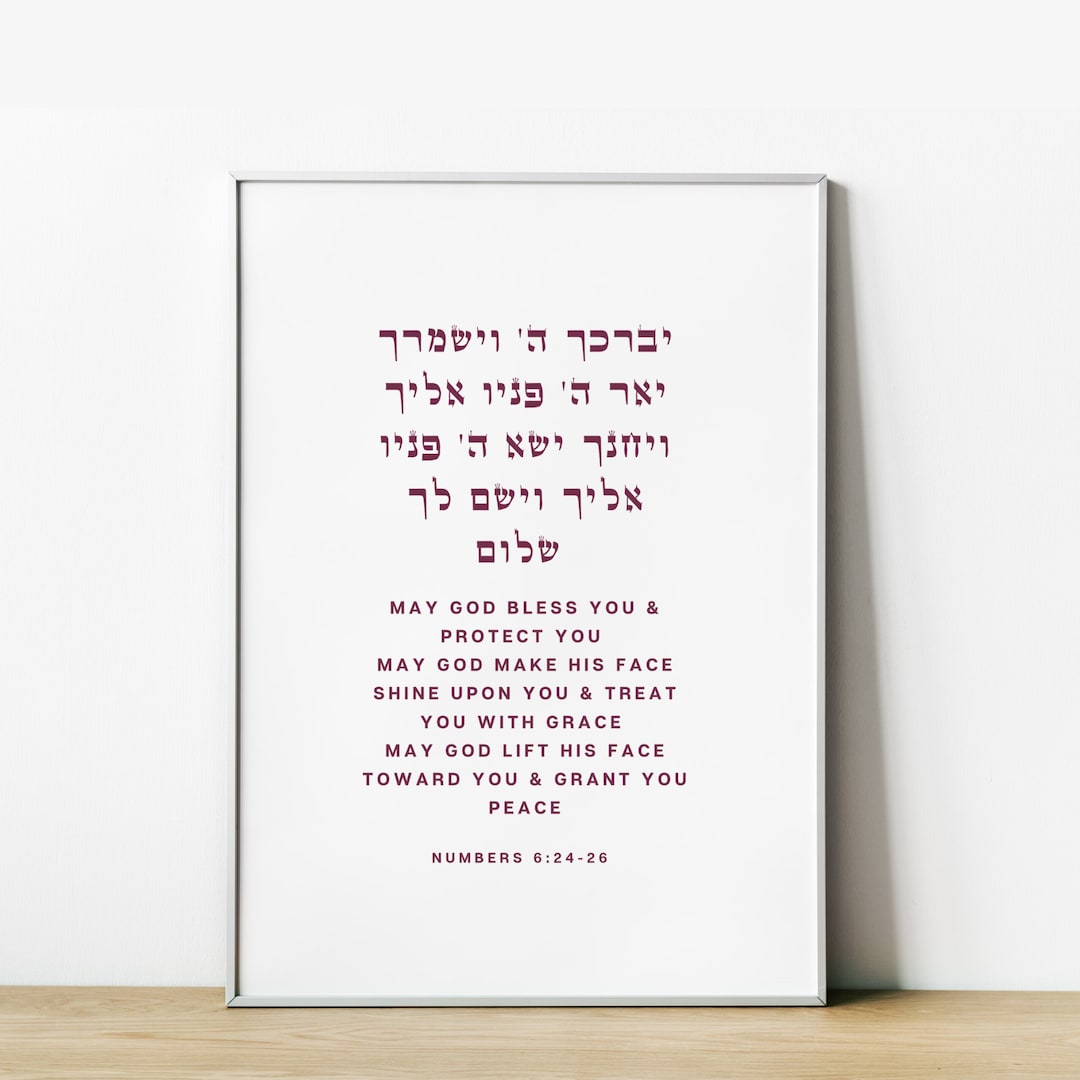 יברכך ה' וישמרך
יאר ה' פניו אליך
ויחנך ישא ה' פניו
אליך וישם לך
שלום
MAY GOD BLESS YOU &
PROTECT YOU
MAY GOD MAKE HIS FACE
SHINE UPON YOU & TREAT
YOU WITH GRACE
MAY GOD LIFT HIS FACE
TOWARD YOU & GRANT YOU
PEACE
NUMBERS 6:24-26